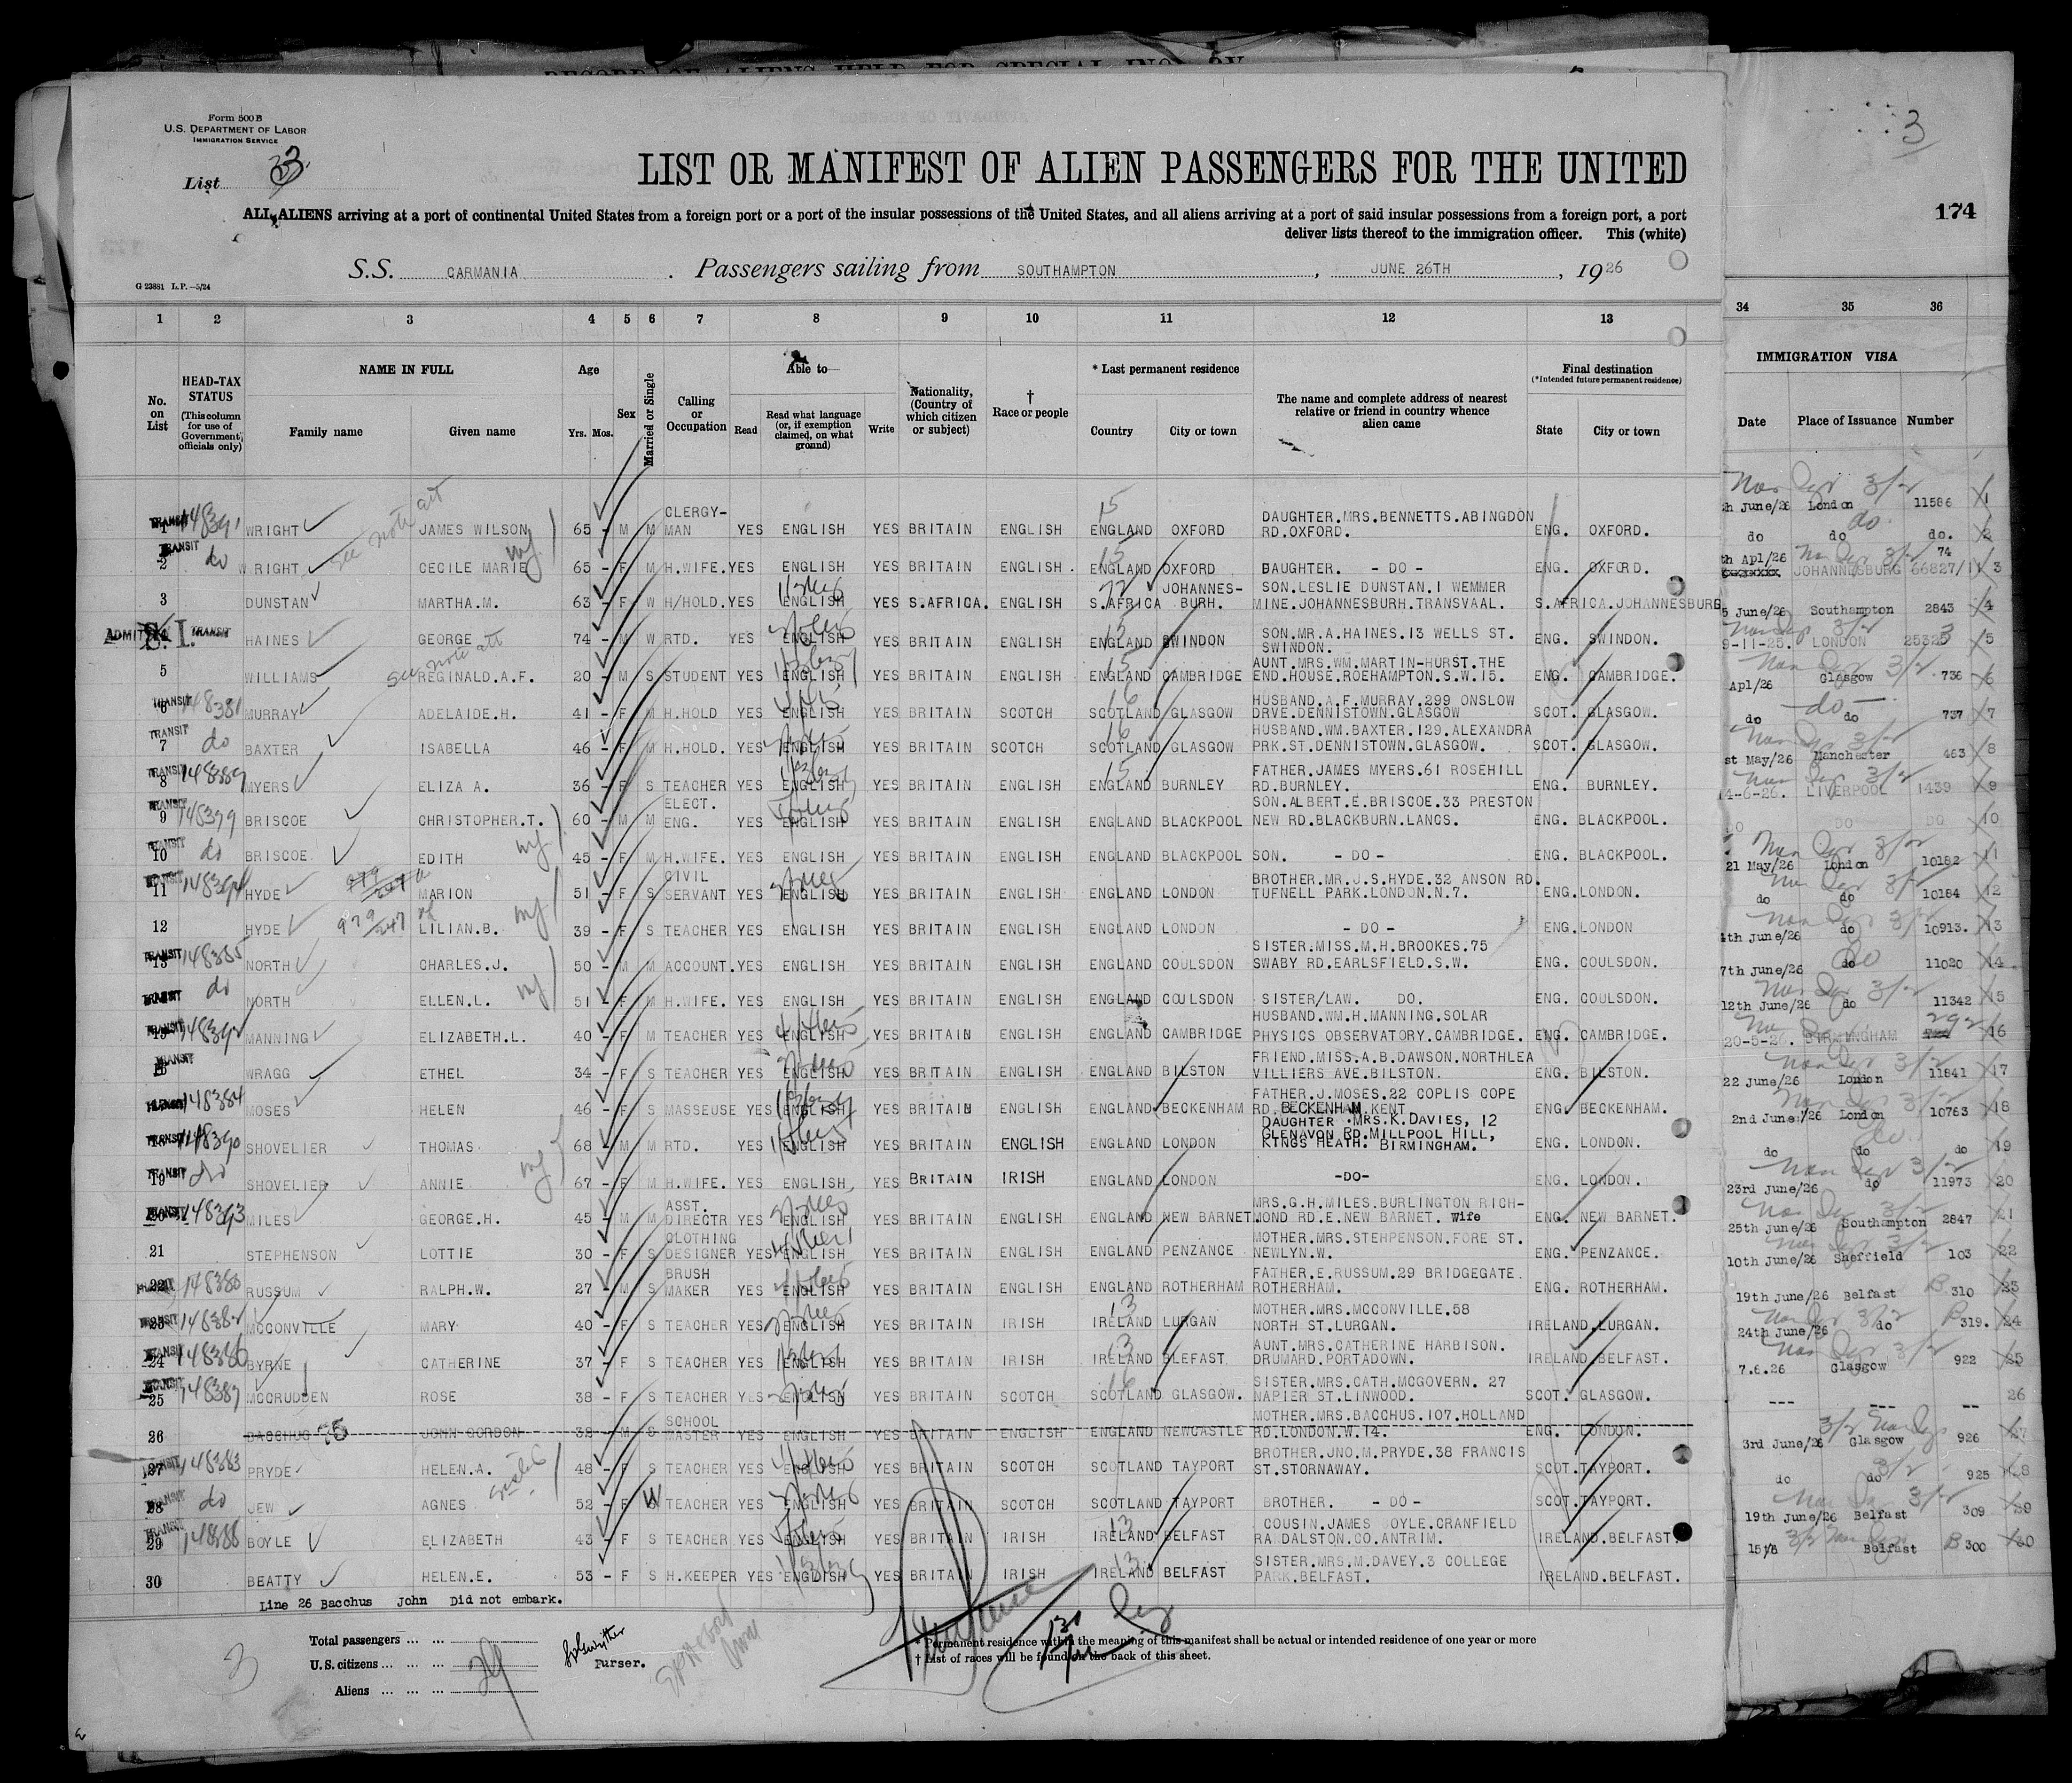 RECORD OF ALIENS HELD FOR SPECIAL INQUIRY
Form 500 B
U.S. DEPARTMENT OF LABOR
IMMIGRATION SERVICE
List 33
3
174
LIST OR MANIFEST OF ALIEN PASSENGERS FOR THE UNITED
ALL ALIENS arriving at a port of continental United States from a foreign port or a port of the insular possessions of the United States, and all aliens arriving at a port of said insular possessions from a foreign port, a port
deliver lists thereof to the immigration officer. This (white)
S.S. CARMANIA . Passengers sailing from SOUTHAMPTON , JUNE 26TH , 1926
G 23881 L.P.—5/24
1 2 3 4 5 6 7 8 9 10 11 12 13 34 35 36
No. on List
HEAD-TAX STATUS (This column for use of Government officials only)
NAME IN FULL Family name Given name
Age Yrs. Mos.
Sex
Married or Single
Calling or Occupation
Able to Read Read what language (or, if exemption claimed, on what ground) Write
Nationality, (Country of which citizen or subject)
† Race or people
* Last permanent residence Country City or town
The name and complete address of nearest relative or friend in country whence alien came
Final destination (*Intended future permanent residence) State City or town
IMMIGRATION VISA Date Place of Issuance Number
1 TRANSIT 148391 WRIGHT JAMES WILSON 65 - M M CLERGY-MAN YES ENGLISH YES BRITAIN ENGLISH ENGLAND OXFORD DAUGHTER.MRS.BENNETTS.ABINGDON RD.OXFORD. ENG. OXFORD. June/26 London 11586 1
2 TRANSIT do WRIGHT CECILE MARIE 65 - F M H.WIFE. YES ENGLISH YES BRITAIN ENGLISH. ENGLAND OXFORD DAUGHTER. - DO - ENG. OXFORD. do do do. 2
3 DUNSTAN MARTHA.M. 63 - F W H/HOLD. YES ENGLISH YES S.AFRICA. ENGLISH S.AFRICA JOHANNES-BURH. SON.LESLIE DUNSTAN.1 WEMMER MINE.JOHANNESBURH.TRANSVAAL. S.AFRICA.JOHANNESBURG th Apl/26 JOHANNESBURG 74 66827/11 3
ADMITTED S.I. TRANSIT HAINES GEORGE 74 - M W RTD. YES ENGLISH YES BRITAIN ENGLISH ENGLAND SWINDON SON.MR.A.HAINES.13 WELLS ST. SWINDON. ENG. SWINDON. 5 June/26 Southampton 2843 4
5 WILLIAMS REGINALD.A.F. 20 - M S STUDENT YES ENGLISH YES BRITAIN ENGLISH ENGLAND CAMBRIDGE AUNT.MRS.WM.MARTIN-HURST.THE END.HOUSE.ROEHAMPTON.S.W.15. ENG. CAMBRIDGE. 9-11-25. LONDON 25325 5
6 TRANSIT 148381 MURRAY ADELAIDE.H. 41 - F M H.HOLD YES ENGLISH YES BRITAIN SCOTCH SCOTLAND GLASGOW HUSBAND.A.F.MURRAY.299 ONSLOW DRVE.DENNISTOWN.GLASGOW SCOT. GLASGOW. Apl/26 Glasgow 736 6
7 TRANSIT do BAXTER ISABELLA 46 - F M H.HOLD. YES ENGLISH YES BRITAIN SCOTCH SCOTLAND GLASGOW HUSBAND.WM.BAXTER.129.ALEXANDRA PRK.ST.DENNISTOWN.GLASGOW. SCOT. GLASGOW. do do 737 7
8 TRANSIT 148389 MYERS ELIZA A. 36 - F S TEACHER YES ENGLISH YES BRITAIN ENGLISH ENGLAND BURNLEY FATHER.JAMES MYERS.61 ROSEHILL RD.BURNLEY. ENG. BURNLEY. st May/26 Manchester 463 8
9 TRANSIT 148379 BRISCOE CHRISTOPHER.T. 60 - M M ELECT. ENG. YES ENGLISH YES BRITAIN ENGLISH ENGLAND BLACKPOOL SON.ALBERT.E.BRISCOE.33 PRESTON NEW RD.BLACKBURN.LANCS. ENG. BLACKPOOL. 4-6-26. LIVERPOOL 1439 9
10 TRANSIT do BRISCOE. EDITH 45 - F M H.WIFE. YES ENGLISH YES BRITAIN ENGLISH ENGLAND BLACKPOOL SON. - DO - ENG. BLACKPOOL. DO DO DO 10
11 TRANSIT 148394 HYDE MARION 51 - F S CIVIL SERVANT YES ENGLISH YES BRITAIN ENGLISH ENGLAND LONDON BROTHER.MR.J.S.HYDE.32 ANSON RD. TUFNELL PARK.LONDON.N.7. ENG.LONDON. 21 May/26 London 10182 11
12 HYDE 979/247 LILIAN.B. 39 - F S TEACHER YES ENGLISH YES BRITAIN ENGLISH ENGLAND LONDON - DO - ENG.LONDON do do 10184 12
13 TRANSIT 148385 NORTH CHARLES.J. 50 - M M ACCOUNT. YES ENGLISH YES BRITAIN ENGLISH ENGLAND COULSDON SISTER.MISS.M.H.BROOKES.75 SWABY RD.EARLSFIELD.S.W. ENG. COULSDON. 4th June/26 do 10913. 13
TRANSIT do NORTH ELLEN.L. 51 - F M H.WIFE. YES ENGLISH YES BRITAIN ENGLISH ENGLAND COULSDON SISTER/LAW. DO. ENG. COULSDON. 7th June/26 do 11020 14
15 TRANSIT 148392 MANNING ELIZABETH.L. 40 - F M TEACHER YES ENGLISH YES BRITAIN ENGLISH ENGLAND CAMBRIDGE HUSBAND.WM.H.MANNING.SOLAR PHYSICS OBSERVATORY.CAMBRIDGE. ENG. CAMBRIDGE. 12th June/26 do 11342 15
TRANSIT WRAGG ETHEL 34 - F S TEACHER YES ENGLISH YES BRITAIN ENGLISH ENGLAND BILSTON FRIEND.MISS.A.B.DAWSON.NORTHLEA VILLIERS AVE.BILSTON. ENG. BILSTON. 20-5-26. BIRMINGHAM 292 16
TRANSIT 148384 MOSES HELEN 46 - F S MASSEUSE YES ENGLISH YES BRITAIN ENGLISH ENGLAND BECKENHAM FATHER.J.MOSES.22 COPLIS COPE RD. BECKENHAM KENT ENG. BECKENHAM. 22 June/26 London 11841 17
TRANSIT 148390 SHOVELIER THOMAS 68 - M M RTD. YES ENGLISH YES BRITAIN ENGLISH ENGLAND LONDON DAUGHTER MRS.K.DAVIES, 12 GLENAVON RD.MILLPOOL HILL, KINGS HEATH. BIRMINGHAM. ENG. LONDON. 2nd June/26 London 10763 18
19 TRANSIT do SHOVELIER ANNIE 67 - F M H.WIFE. YES ENGLISH YES BRITAIN IRISH ENGLAND LONDON -DO- ENG. LONDON. do do do 19
20 TRANSIT 148393 MILES GEORGE.H. 45 - M M ASST. DIRECTR YES ENGLISH YES BRITAIN ENGLISH ENGLAND NEW BARNET. MRS.G.H.MILES.BURLINGTON RICH-MOND RD.E.NEW BARNET. Wife ENG. NEW BARNET. 23rd June/26 do 11973 20
21 STEPHENSON LOTTIE 30 - F S CLOTHING DESIGNER YES ENGLISH YES BRITAIN ENGLISH ENGLAND PENZANCE MOTHER.MRS.STEHPENSON.FORE ST. NEWLYN.W. ENG. PENZANCE. 25th June/26 Southampton 2847 21
22 TRANSIT 148380 RUSSUM RALPH.W. 27 - M S BRUSH MAKER YES ENGLISH YES BRITAIN ENGLISH ENGLAND ROTHERHAM FATHER.E.RUSSUM.29 BRIDGEGATE. ROTHERHAM. ENG. ROTHERHAM. 10th June/26 Sheffield 103 22
23 TRANSIT 148382 MCCONVILLE MARY 40 - F S TEACHER YES ENGLISH YES BRITAIN IRISH IRELAND LURGAN MOTHER.MRS.MCCONVILLE.58 NORTH ST.LURGAN. IRELAND.LURGAN. 19th June/26 Belfast B 310 23
24 TRANSIT 148386 BYRNE CATHERINE 37 - F S TEACHER YES ENGLISH YES BRITAIN IRISH IRELAND BLEFAST AUNT.MRS.CATHERINE HARBISON. DRUMARD.PORTADOWN. IRELAND.BELFAST. 24th June/26 do B 319. 24
25 TRANSIT 148387 MCCRUDDEN ROSE 38 - F S TEACHER YES ENGLISH YES BRITAIN SCOTCH SCOTLAND GLASGOW. SISTER.MRS.CATH.MCGOVERN. 27 NAPIER ST.LINWOOD. SCOT. GLASGOW. 7.6.26 Glasgow 922 25
26 BACCHUS JOHN GORDON 38 - M S SCHOOL MASTER YES ENGLISH YES BRITAIN ENGLISH ENGLAND NEWCASTLE MOTHER.MRS.BACCHUS.107.HOLLAND RD.LONDON.W.14. ENG. LONDON. --- --- -- 26
27 TRANSIT 148383 PRYDE HELEN.A. 48 - F S TEACHER YES ENGLISH YES BRITAIN SCOTCH SCOTLAND TAYPORT BROTHER.JNO.M.PRYDE.38 FRANCIS ST.STORNAWAY. SCOT.TAYPORT. 3rd June/26 Glasgow 926 27
28 TRANSIT do JEW AGNES 52 - F W TEACHER YES ENGLISH YES BRITAIN SCOTCH SCOTLAND TAYPORT BROTHER. - DO - SCOT.TAYPORT. do do 925 28
29 TRANSIT 148388 BOYLE ELIZABETH 43 - F S TEACHER YES ENGLISH YES BRITAIN IRISH IRELAND BELFAST COUSIN.JAMES OYLE.CRANFIELD RA DALSTON.CO.ANTRIM. IRELAND.BELFAST. 19th June/26 Belfast 309 29
30 BEATTY HELEN.E. 53 - F S H.KEEPER YES ENGLISH YES BRITAIN IRISH IRELAND BELFAST SISTER.MRS.M.DAVEY.3 COLLEGE PARK.BELFAST. IRELAND.BELFAST. 15/6 Belfast B 300 30
Line 26 Bacchus John Did not embark.
Total passengers ... ...
U.S. citizens ... ... ...
Aliens ... ... ...
29
Purser.
3
* Permanent residence within the meaning of this manifest shall be actual or intended residence of one year or more
† List of races will be found on the back of this sheet.